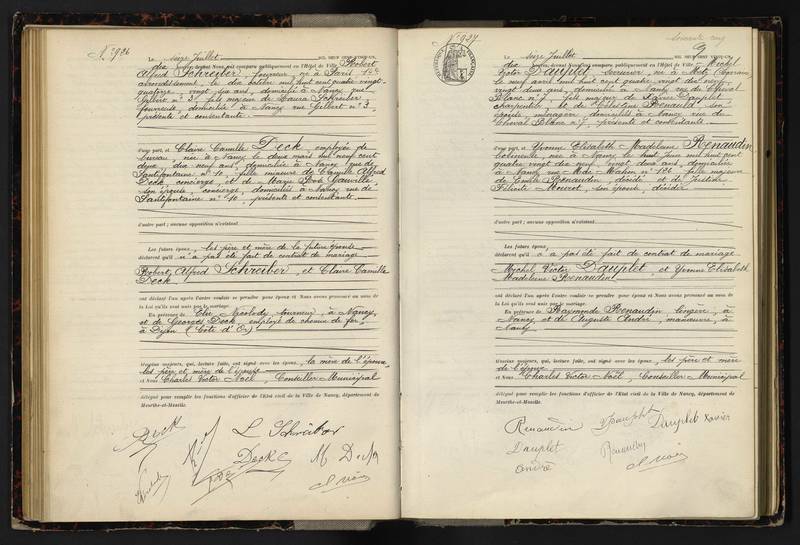 N° 926
Le seize Juillet mil neuf cent vingt-un,
dix heures devant Nous ont comparu publiquement en l'Hôtel de Ville Robert
Alfred Schreiber, fourreur, né à Paris
arrondissement, le dix octobre mil huit cent quatre vingt-
quatorze, vingt six ans, domicilié à Nancy rue
Gilbert n° 3, fils majeur de Laura Schreiber
fourreuse, domiciliée à Nancy rue Gilbert n° 3
présente et consentante.
d'une part, et Claire Camille Deck, employée de
bureau, née à Nancy le deux mars mil neuf cent
deux, dix neuf ans, domiciliée à Nancy rue de
Santifontaine n° 10, fille mineure de Camille Alfred
Deck, concierge, et de Marie
son épouse, concierge, domiciliés à Nancy rue de
Santifontaine n° 10, présents et consentants.
d'autre part; aucune opposition n'existant.
Les futurs époux, les père et mère de la future épouse
déclarent qu'il n'a pas été fait de contrat de mariage.
Robert Alfred Schreiber, et Claire Camille
Deck
ont déclaré l'un après l'autre vouloir se prendre pour époux et Nous avons prononcé au nom de
la Loi qu'ils sont unis par le mariage.
En présence de Elie tourneur, à Nancy,
et de Georges Deck, employé de chemin de fer,
à Dijon (Côte d'Or)
témoins majeurs, qui, lecture faite, ont signé avec les époux, la mère de l'époux,
les père et mère de l'épouse
et Nous Charles Victor Noël, Conseiller Municipal
délégué pour remplir les fonctions d'officier de l'État civil de la Ville de Nancy, département de
Meurthe-et-Moselle.
Deck L Schreiber
Decke M Deck
C Noël
N° 927
Le seize Juillet mil neuf cent vingt-un,
dix heures devant Nous ont comparu publiquement en l'Hôtel de Ville Michel
Victor Dauplet, né à Metz (Lorraine)
le neuf avril mil huit cent quatre vingt dix neuf,
vingt deux ans, domicilié à Nancy rue du Cheval
Blanc n° 7, fils majeur de Xavier Dauplet
charpentier, et de Célestine Renauld son
épouse, ménagère, domiciliés à Nancy rue du
Cheval Blanc n° 7, présents et consentants
d'une part, et Yvonne Elisabeth Madeleine Renaudin
née à Nancy le huit Juin mil huit cent
quatre vingt dix neuf, vingt deux ans, domiciliée
à Nancy rue Mac Mahon n° 126, fille majeure
de Emile Renaudin, décédé et de Justine
Félicité Mourot, son épouse, décédée
d'autre part; aucune opposition n'existant.
Les futurs époux,
déclarent qu'il n'a pas été fait de contrat de mariage
Michel Victor Dauplet et Yvonne Elisabeth
Madeleine Renaudin
ont déclaré l'un après l'autre vouloir se prendre pour époux et Nous avons prononcé au nom de
la Loi qu'ils sont unis par le mariage.
En présence de Raymonde Renaudin lingère, à
Nancy, et de Auguste André, manœuvre, à
Nancy
témoins majeurs, qui, lecture faite, ont signé avec les époux, les père et mère
de l'époux
et Nous Charles Victor Noël, Conseiller Municipal
délégué pour remplir les fonctions d'officier de l'État civil de la Ville de Nancy, département de
Meurthe-et-Moselle.
Renaudin Dauplet Dauplet Xavier
Dauplet Renaudin
André C Noël